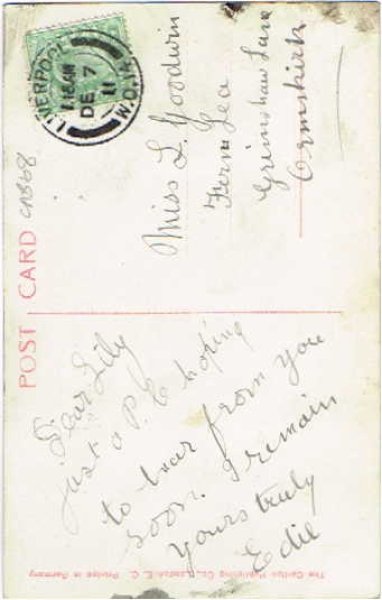 POST CARD
CNB68
LIVERPOOL
11.15AM
DE 7
11
Miss L. Goodwin
Fern Lea
Grimshaw Lane
Ormskirk
Dear Lily
Just a P. C hoping
to hear from you
soon. I remain
yours truly
Edie
The Carlton Publishing Co., London, E. C. Printed in Germany